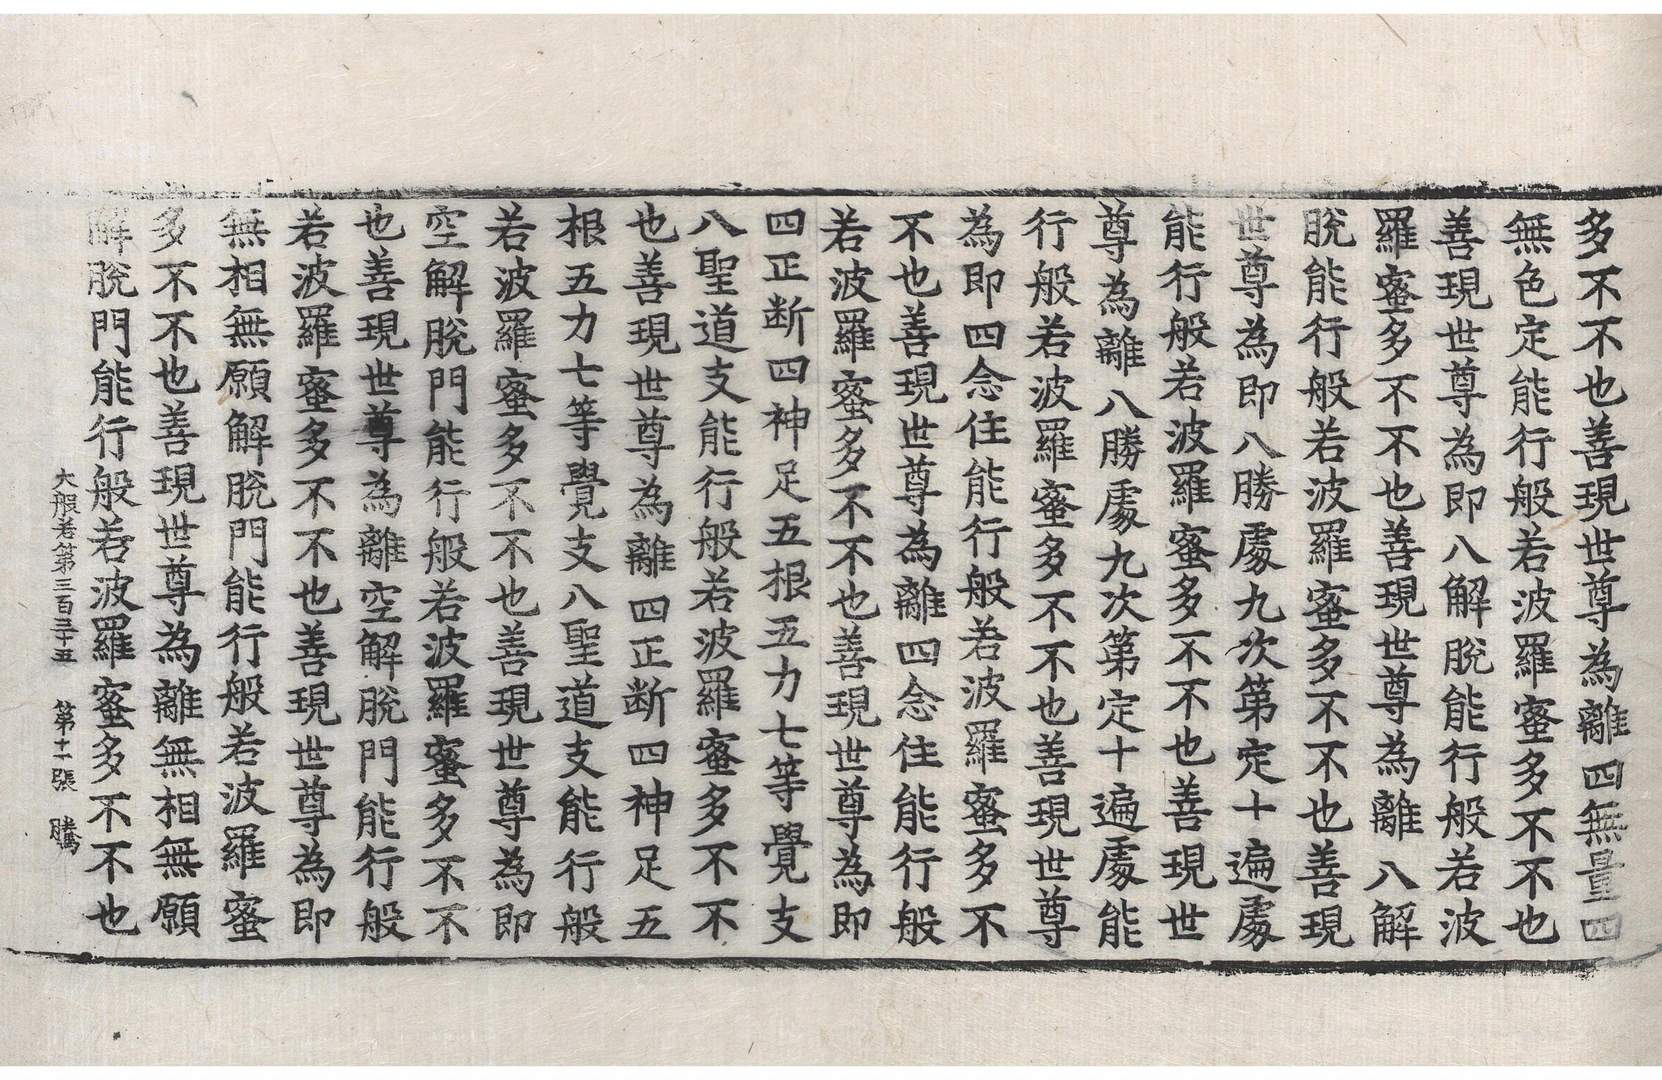 多不不也善現世尊為離四無量四
無色定能行般若波羅蜜多不不也
善現世尊為即八解脫能行般若波
羅蜜多不不也善現世尊為離八解
脫能行般若波羅蜜多不不也善現
世尊為即八勝處九次第定十遍處
能行般若波羅蜜多不不也善現世
尊為離八勝處九次第定十遍處能
行般若波羅蜜多不不也善現世尊
為即四念住能行般若波羅蜜多不
不也善現世尊為離四念住能行般
若波羅蜜多不不也善現世尊為即
四正断四神足五根五力七等覺支
八聖道支能行般若波羅蜜多不不
也善現世尊為離四正断四神足五
根五力七等覺支八聖道支能行般
若波羅蜜多不不也善現世尊為即
空解脫門能行般若波羅蜜多不不
也善現世尊為離空解脫門能行般
若波羅蜜多不不也善現世尊為即
無相無願解脫門能行般若波羅蜜
多不不也善現世尊為離無相無願
解脫門能行般若波羅蜜多不不也
大般若第三百三十五 第十一張 騰